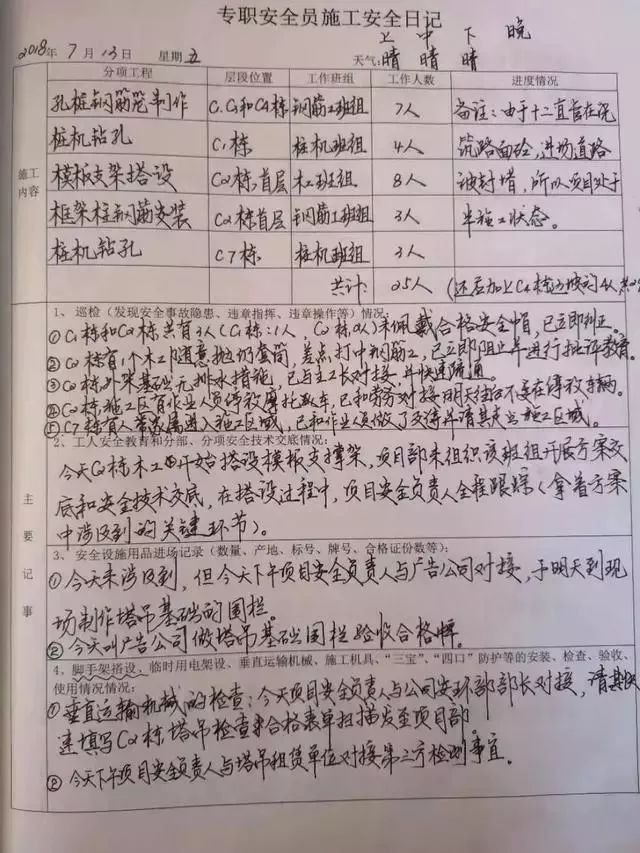 专职安全员施工安全日记
上 中 下 晚
2018年 7月13日 星期五 天气: 晴 晴 晴
分项工程 层段位置 工作班组 工作人数 进度情况
施工内容
孔桩钢筋笼制作 钢筋工班组 7人 备注:由于十二直管在浇
桩机钻孔 C1栋 桩机班组 4人 筑路面砼,进场道路
模板支架搭设 C2栋首层 木工班组 8人 被封堵,所以项目处于
框架柱钢筋安装 C2栋首层 钢筋工班组 3人 半施工状态。
桩机钻孔 C7栋 桩机班组 3人
共计: 25人
主要记事
1、巡检(发现安全事故隐患、违章指挥、违章操作等)情况:
①C1栋和C2栋共有3人(C1栋:1人,C2栋2人)未佩戴合格安全帽,已立即纠正。
②C2栋有1个木工随意抛扔套筒,差点打中钢筋工,已立即阻止并进行批评教育。
③C2栋外架基础无排水措施,已与主工长对接,并快速疏通。
④C2栋施工区有作业人员停放摩托车,已和劳务对接明天往后不要在停放车辆。
⑤C7栋有人带家属进入施工区域,已和作业人员做了交待并请其走出施工区域。
2、工人安全教育和分部、分项安全技术交底情况:
今天C2栋木工开始搭设模板支撑架,项目部未组织该班组开展方案交
底和安全技术交底,在搭设过程中,项目安全负责人全程跟踪(拿着方案
中涉及到的关键环节)。
3、安全设施用品进场记录(数量、产地、标号、牌号、合格证份数等):
①今天未涉及到,但今天下午项目安全负责人与广告公司对接,于明天到现
场制作塔吊基础的围栏。
②今天叫广告公司做塔吊基础围栏验收合格牌。
4、脚手架搭设、临时用电架设、垂直运输机械、施工机具、“三宝”、“四口”防护等的安装、检查、验收、
使用情况情况:
①垂直运输机械的检查:今天项目安全负责人与公司安环部部长对接,请其快
速填写C2栋塔吊检查合格表单扫描发至项目部。
②今天下午项目安全负责人与塔吊租赁单位对接第三方检测事宜。